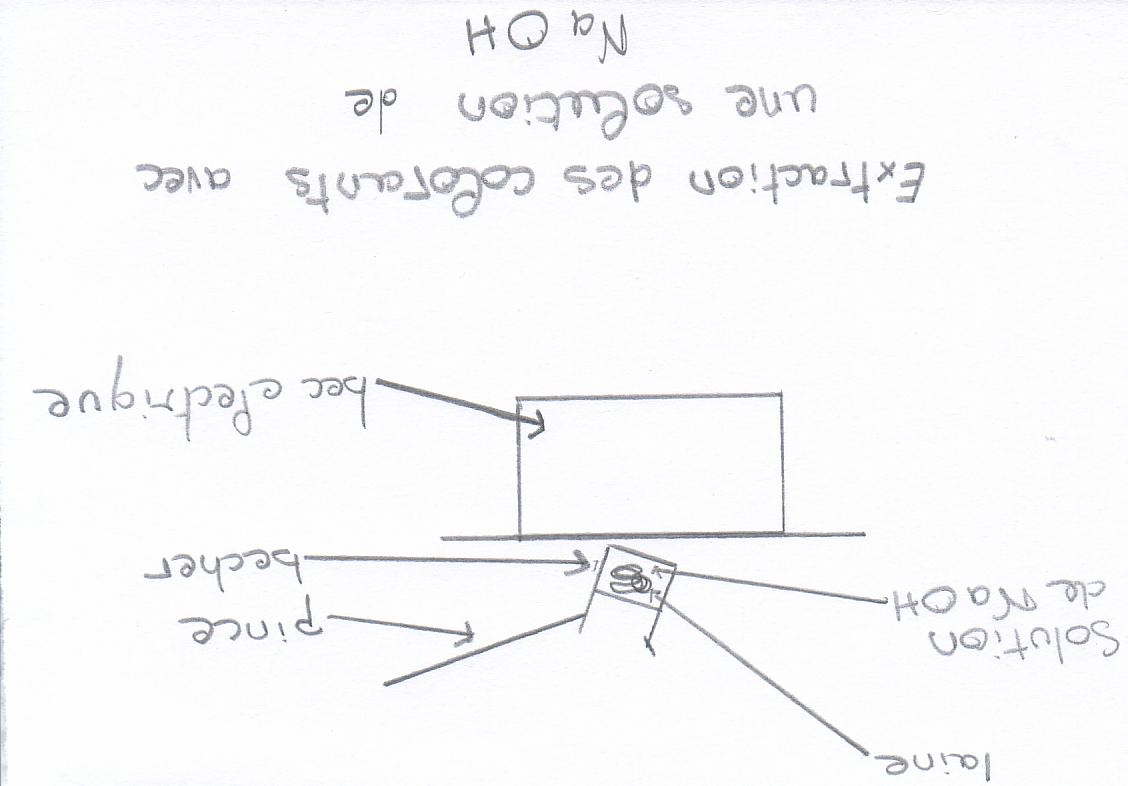 laine
Solution
de NaOH
pince
becher
bec electrique
Extraction des colorants avec
une solution de
NaOH